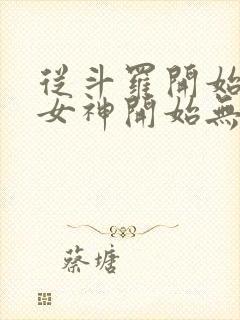 從斗羅開始
女神開始無
蔡塘